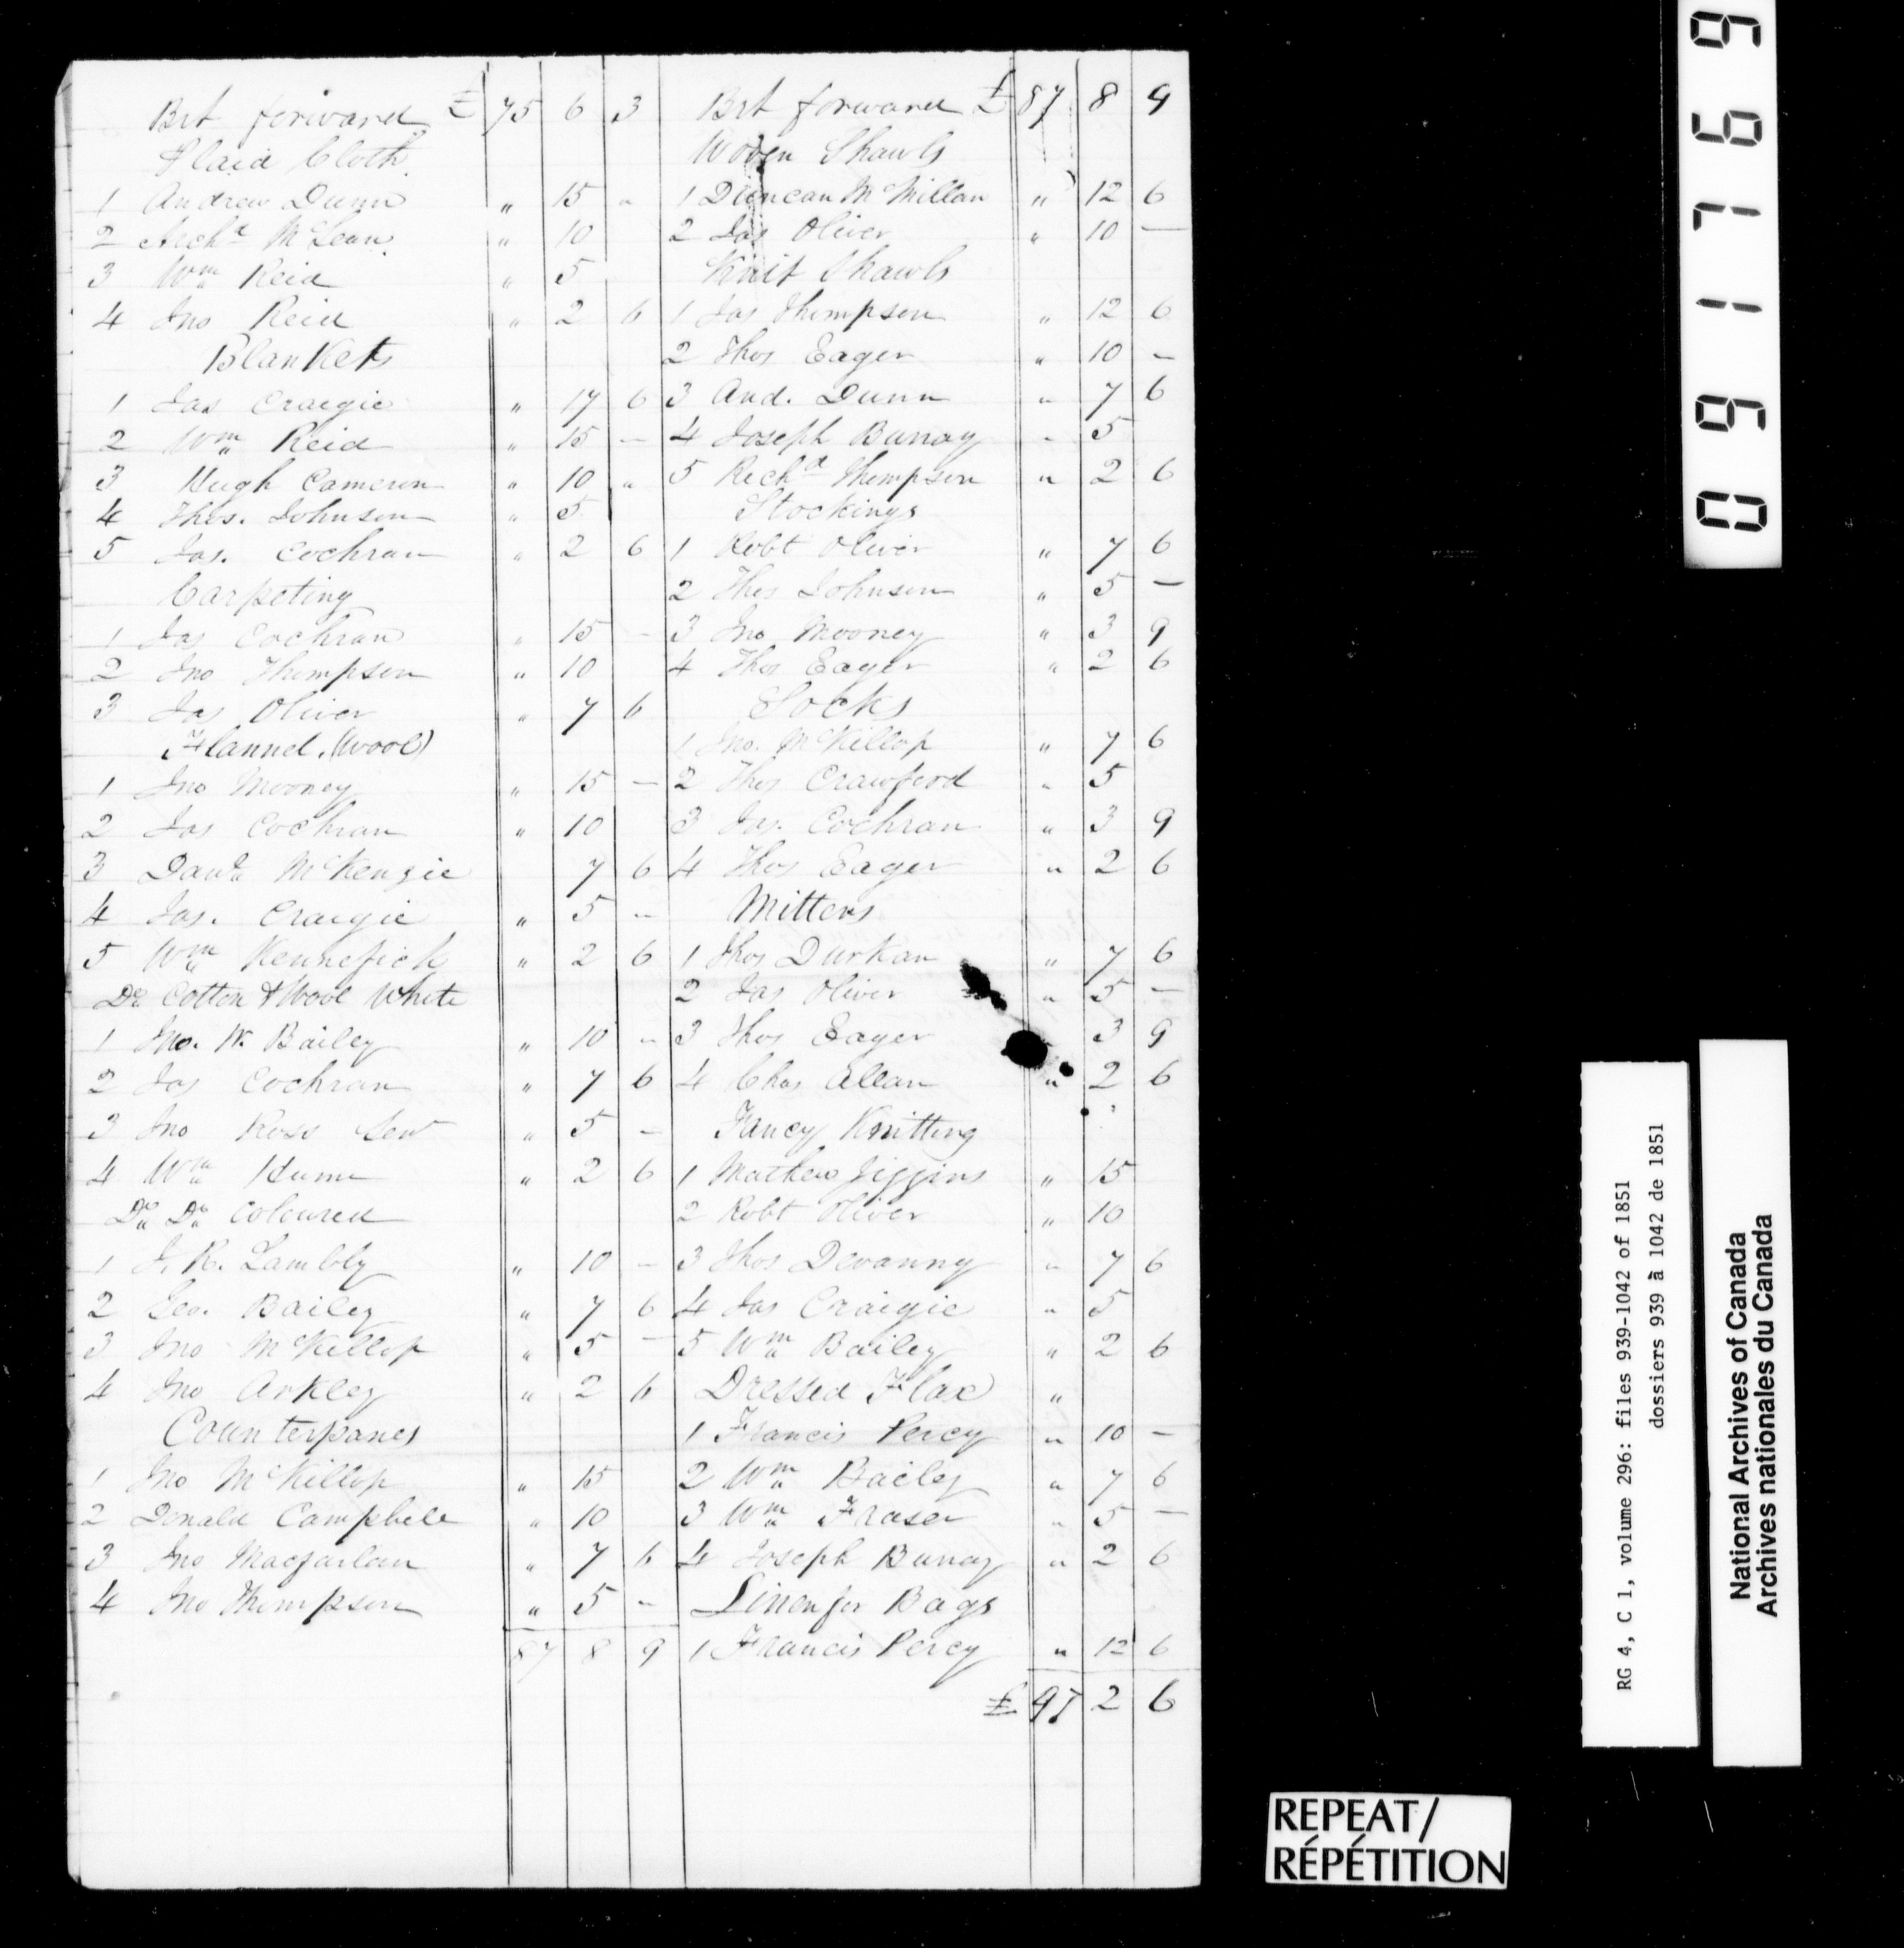 Brt forward £ 75 6 3
Plaid Cloth
1 Andrew Dunn " 15 "
2 Archd McLean " 10
3 Wm Reid " 5
4 Jno Reid " 2 6
Blankets
1 Jas Craigie " 17 6
2 Wm Reid " 15 -
3 Hugh Cameron " 10 "
4 Thos. Johnson " 5
5 Jas. Cochran " 2 6
Carpeting
1 Jas Cochran " 15 -
2 Jno Thompson " 10
3 Jas Oliver " 7 6
Flannel (Wool)
1 Jno Mooney " 15 -
2 Jas Cochran " 10
3 Davd McKenzie 7 6
4 Jas. Craigie " 5 -
5 Wm Kennefick " 2 6
Do Cotton & Wool White
1 Jno. W. Bailey " 10 -
2 Jas Cochran " 7 6
3 Jno Ross Senr " 5 -
4 Wm Hume " 2 6
Do Do Coloured
1 J. R. Lambly " 10 -
2 Geo. Bailey " 7 6
3 Jno McKillop " 5 -
4 Jno Arkley " 2 6
Counterpanes
1 Jno McKillop " 15
2 Donald Campbell " 10
3 Jno Macfarlan " 7 6
4 Jno Thompson " 5 -
87 8 9
Brt forward £ 87 8 9
Woven Shawls
1 Duncan McMillan " 12 6
2 Jas Oliver " 10 -
Knit Shawls
1 Jas Thompson " 12 6
2 Thos Eager " 10 -
3 And. Dunn " 7 6
4 Joseph Bunay " 5
5 Richd Thompson " 2 6
Stockings
1 Robt Oliver " 7 6
2 Thos Johnson " 5 -
3 Jno Mooney " 3 9
4 Thos Eager " 2 6
Socks
1 Jno. McKillop " 7 6
2 Thos Crawford " 5
3 Jas. Cochran " 3 9
4 Thos Eager " 2 6
Mittens
1 Thos Durkan " 7 6
2 Jas Oliver " 5 -
3 Thos Eager 3 9
4 Chas Allan " 2 6
Fancy Knitting
1 Mathew Jiggins " 15
2 Robt Oliver " 10
3 Thos Devanny " 7 6
4 Jas Craigie " 5
5 Wm Bailey " 2 6
Dressed Flax "
1 Francis Percy " 10 -
2 Wm Bailey " 7 6
3 Wm Fraser " 5 -
4 Joseph Bunay " 2 6
Linen for Bags
1 Francis Percy " 12 6
£ 97 2 6
091769
RG 4, C 1, volume 296: files 939-1042 of 1851
dossiers 939 à 1042 de 1851
National Archives of Canada
Archives nationales du Canada
REPEAT/
RÉPÉTITION